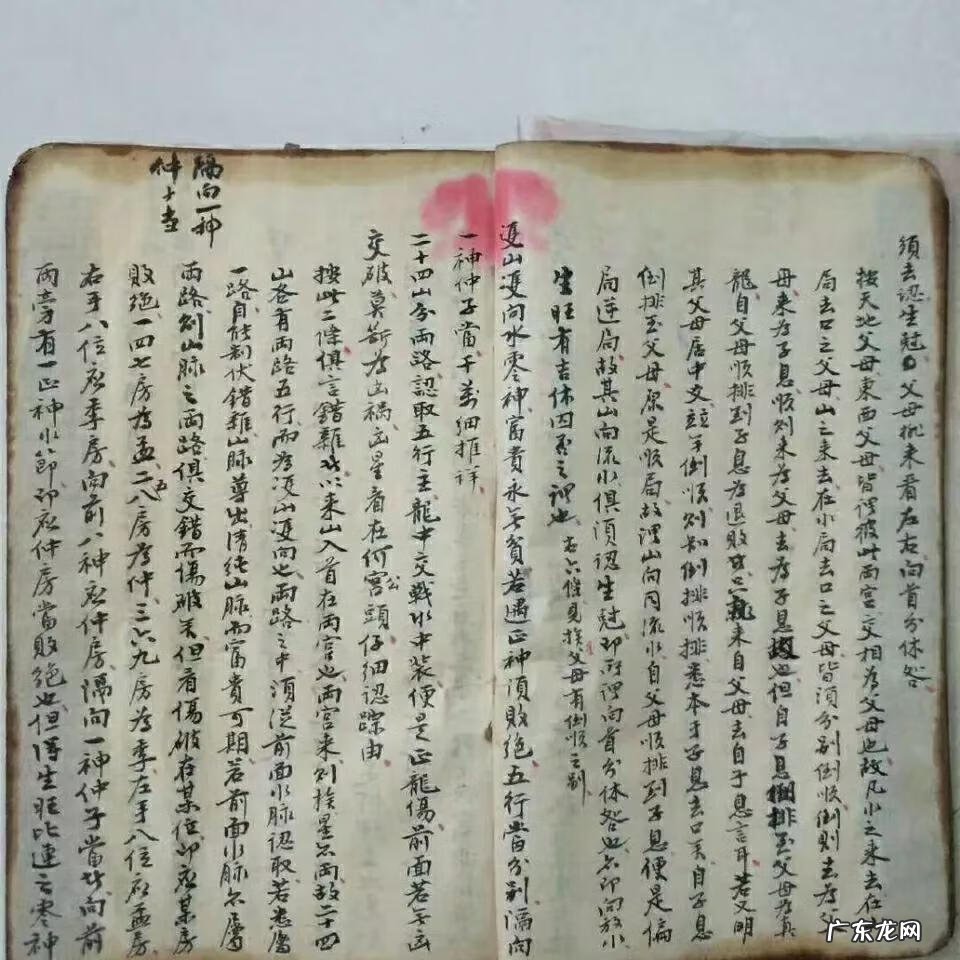 須去認生尅父母排來看左右向首分休咎
按天地父母東西父母皆謂彼此兩宮交相為父母也故凡水之來去在
局去口之父母山之來去在小局去口之父母皆須分别倒順倒則去為父
母來為子息順則來為父母去為子息也但自子息倒排至父母為真
龍自父母順排到子息為退敗來自父母去自子息言耳若又明
其父母居中爻顛倒順則知倒排順排悉本于子息去口矣自子息
倒排至父母原是順局故謂山向同流水自父母順排到子息便是偏
局逆局故其山向流水俱須認生尅即所謂向首分休咎也亦即向放水
生旺有吉休囚否之謂也
右六條見挨父母有倒順之别
雙山雙向水零神富貴永無貧若遇正神須敗絕五行當分别隔向
一神仲子當千萬細推祥
二十四山分兩路認取五行主龍中交戰水中裝便是正龍傷前面若無凶
交破莫斷為凶禍凶星看在何宮公頭仔細認踪由
按此二條俱言錯雜若以來山入首在兩宮也兩宮來則挨星亦兩故二十四
山各有兩路五行而為雙山雙向也兩路之中須從前面水脉認取若悉屬
一路自能制伏錯雜山脉導出清純山脉而富貴可期若前面水脉亦屬
兩路則山脉之兩路俱交錯而傷破矣但看傷破在某位即應某房
敗絕一四七房為孟二五八房為仲三六九房為季左手八位應孟房
右手八位應季房向前八神應仲房隔向一神仲子當者向前
兩旁有一正神水節即應仲房當敗絕也但得生旺比連之零神
隔向一神
仲子當
广东龙网